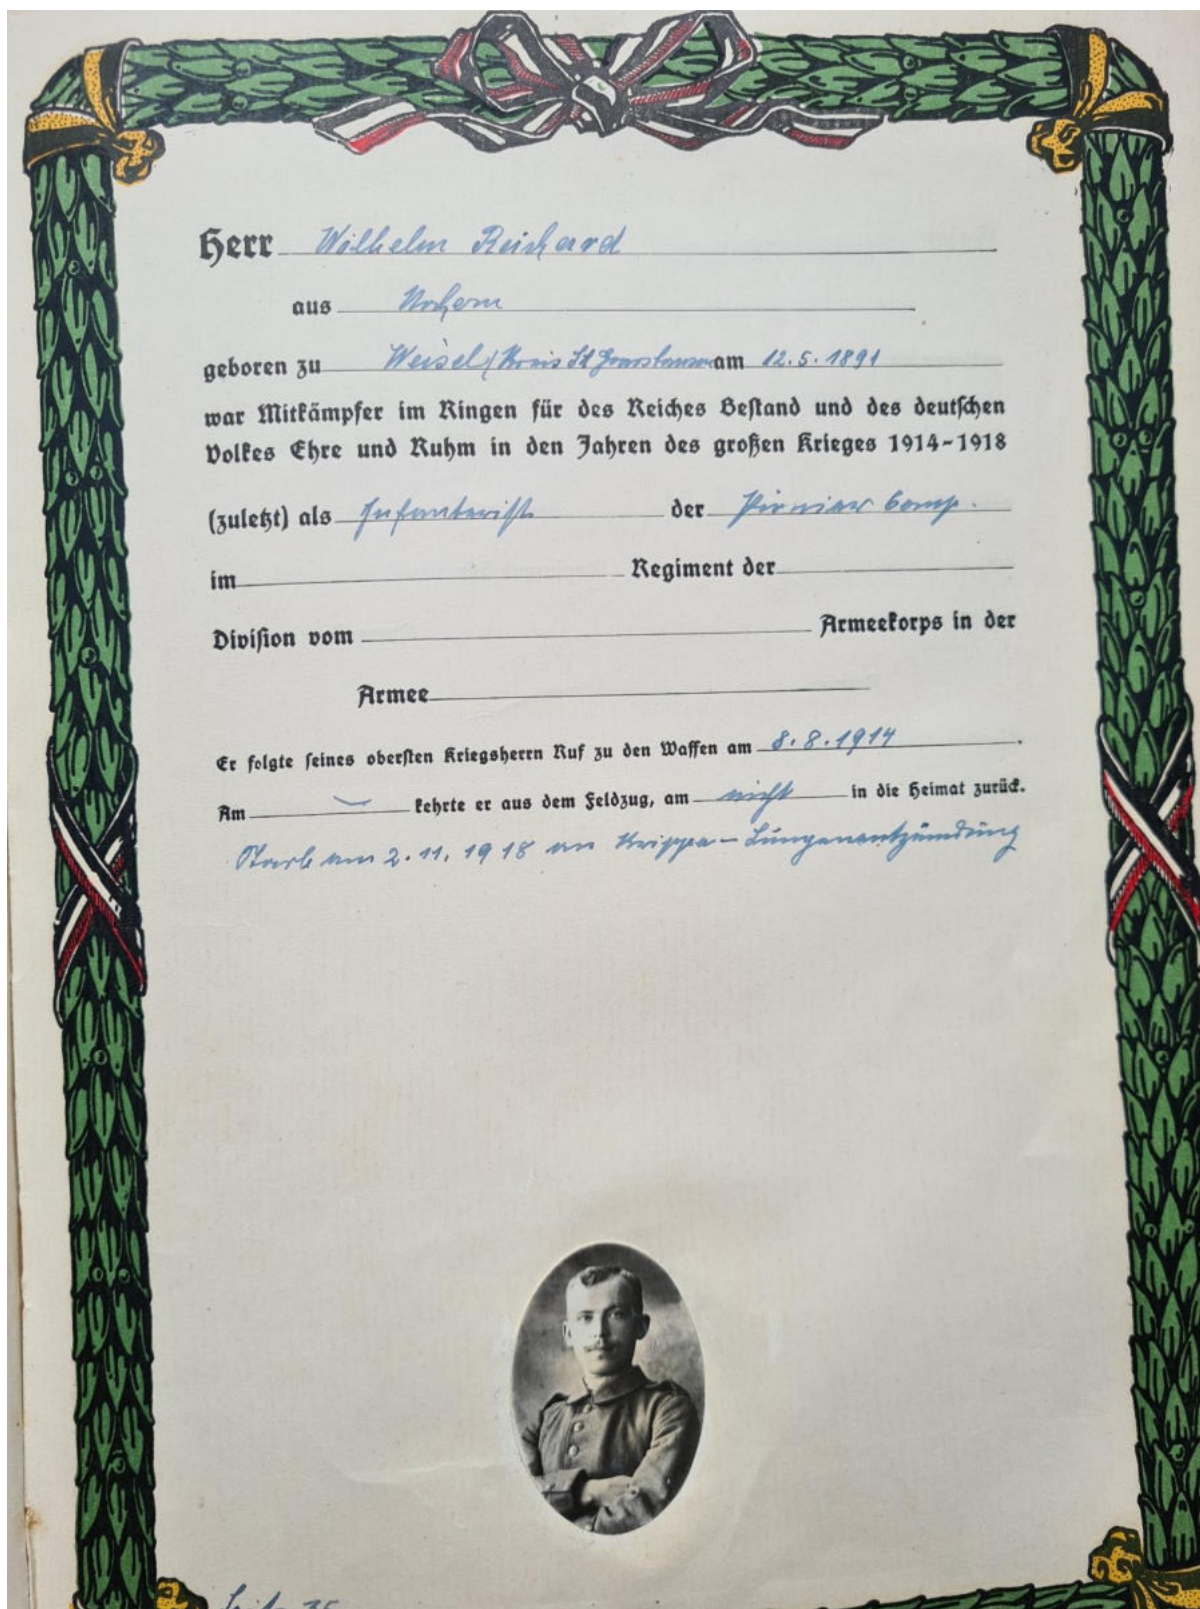 Herr Wilhelm Reichard
aus Nochern
geboren zu Weisel/Kreis St Goarshausen am 12.5.1891
war Mitkämpfer im Ringen für des Reiches Bestand und des deutschen
Volkes Ehre und Ruhm in den Jahren des großen Krieges 1914-1918
(zuletzt) als Infanterist der Pionier Comp.
im Regiment der
Division vom Armeekorps in der
Armee
Er folgte seines obersten Kriegsherrn Ruf zu den Waffen am 8.8.1914.
Am kehrte er aus dem Feldzug, am nicht in die Heimat zurück.
Starb am 2.11.1918 an Krippe-Lungenentzündung
Seite 35